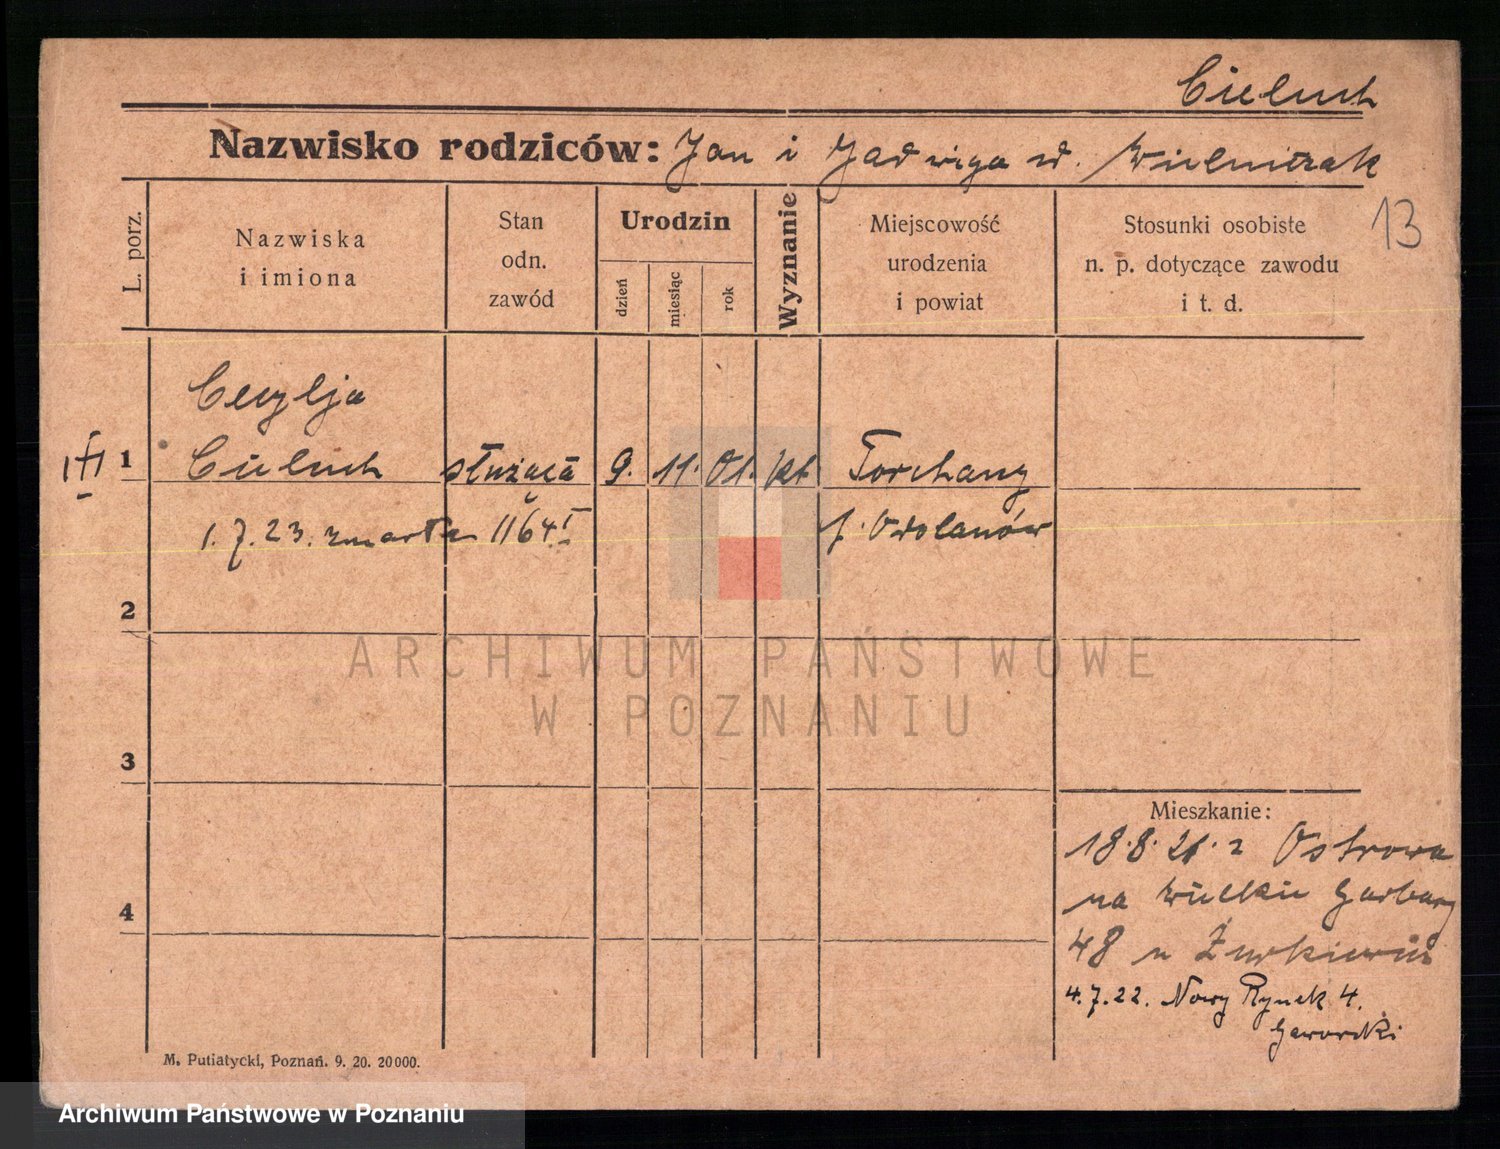 Cieluch
Nazwisko rodziców: Jan i Jadwiga d. Wielniczak
13
L. porz.
Nazwiska
i imiona
Stan
odn.
zawód
Urodzin
dzień
miesiąc
rok
Wyznanie
Miejscowość
urodzenia
i powiat
Stosunki osobiste
n. p. dotyczące zawodu
i t. d.
Cecylja
1 Cieluch służąca 9. 11. 01. kt. Torchany
1.7.23. zmarła 1164 I p. Odolanów
2
3
4
Mieszkanie:
18.8.21. z Ostrowa
na Wielkie Garbary
48 u Żurkiewicz
4.7.22. Nowy Rynek 4.
M. Putiatycki, Poznań. 9. 20. 20000.
ARCHIWUM PAŃSTWOWE
W POZNANIU
Archiwum Państwowe w Poznaniu